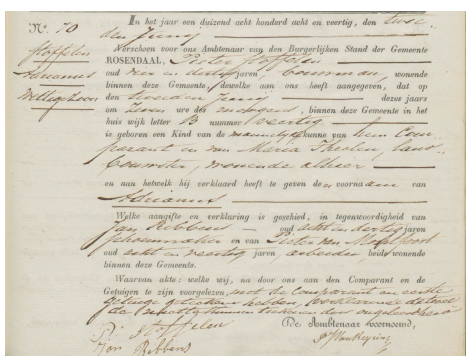 N.º 70
Stoffelen
Adrianus
In het jaar een duizend acht honderd acht en veertig, den twee
den Juny
Verscheen voor ons Ambtenaar van den Burgerlijken Stand der Gemeente
ROSENDAAL, Pieter Stoffelen
oud een en dertig jaren, bouwman, wonende
binnen deze Gemeente, dewelke aan ons heeft aangegeven, dat op
den tweeden Juny dezes jaars
om zeven ure des morgens, binnen deze Gemeente in het
huis wijk letter B nummer veertig
is geboren een Kind van de mannelijke kunne van hem Com-
parant en van Maria Theolen, land-
bouwster, wonende alhier
en aan hetwelk hij verklaard heeft te geven den voornaam van
Adrianus
Welke aangifte en verklaring is geschied, in tegenwoordigheid van
Jan Ribbens oud acht en dertig jaren
schoenmaker en van Pieter van
oud acht en veertig jaren, arbeider beide wonende
binnen deze Gemeente.
Waarvan akte: welke wij, na door ons aan den Comparant en de
Getuigen te zijn voorgelezen, met de comparant en eerste
getuige geteekend hebben, verklarende de tweede
De Ambtenaar voornoemd,
P. Stoffelen
Jan Ribbens